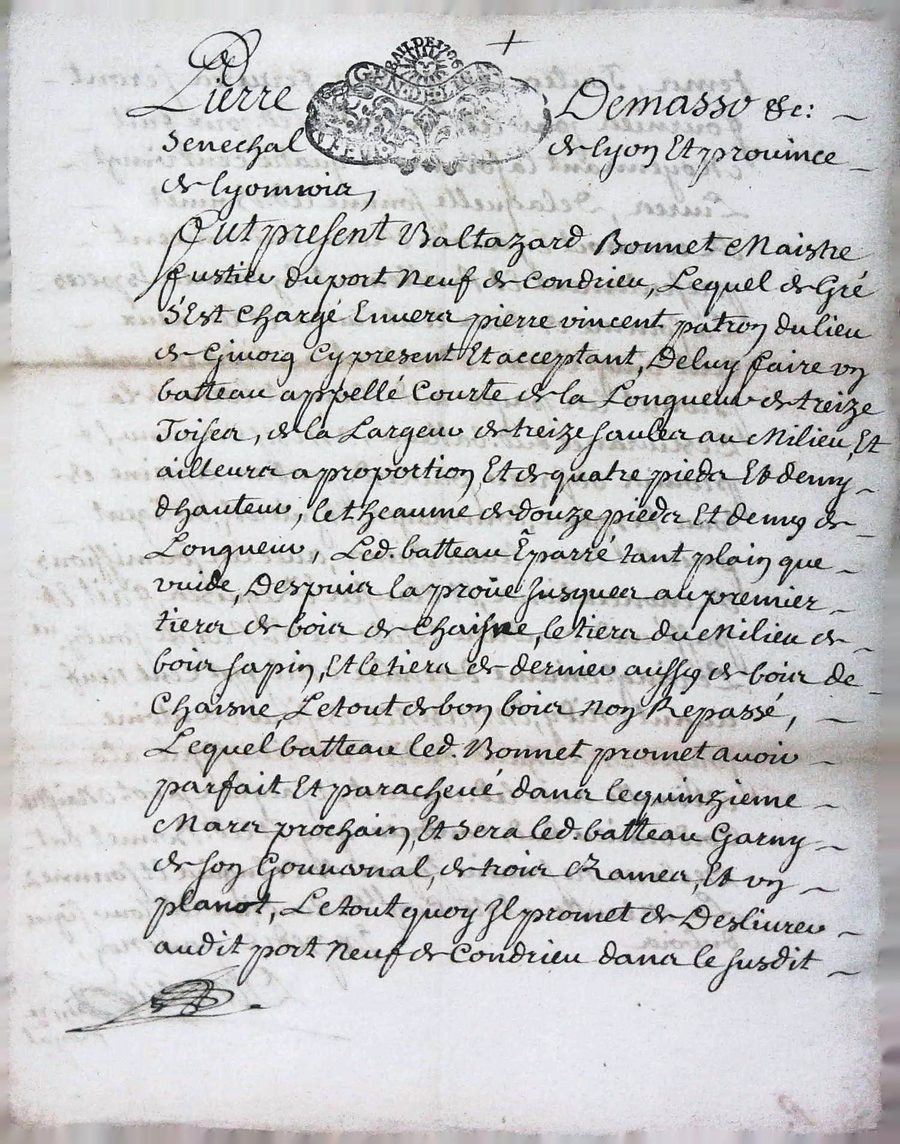 BAIL DE 1706
GEN. DE LION
Pierre Demasso &c:
Senechal de lyon Et province
de lyonnois,
fut present Baltazard Bonnet Maistre
fustier du port Neuf de Condrieu, Lequel de Gré
s'Est Chargé Envers pierre vincent patron du lieu
de Givors Cy present Et acceptant, De luy faire un
batteau appellé Courte de la Longueur de treize
Toises, de la Largeur de treize saules au Milieu, Et
ailleurs a proportion Et de quatre pieds Et demy
dhauteur, le theaume de douze pieds Et demy de
Longueur, Led. batteau Éparré tant plain que
vuide, Despuis la proüe Jusques au premier
tiers de bois de Chaisne, le tiers du Milieu de
bois sapin, Et le tiers de dernier aussy de bois de
Chaisne, Le tout de bon bois Non Repassé,
Lequel batteau led. Bonnet promet avoir
parfait Et parachevé dans le quinzieme
Mars prochain, Et sera led. batteau Garny
de son Gouvernal, de trois Rames, Et un
planot, Le tout quoy Jl promet de Deslivrer
audit port Neuf de Condrieu dans le susdit